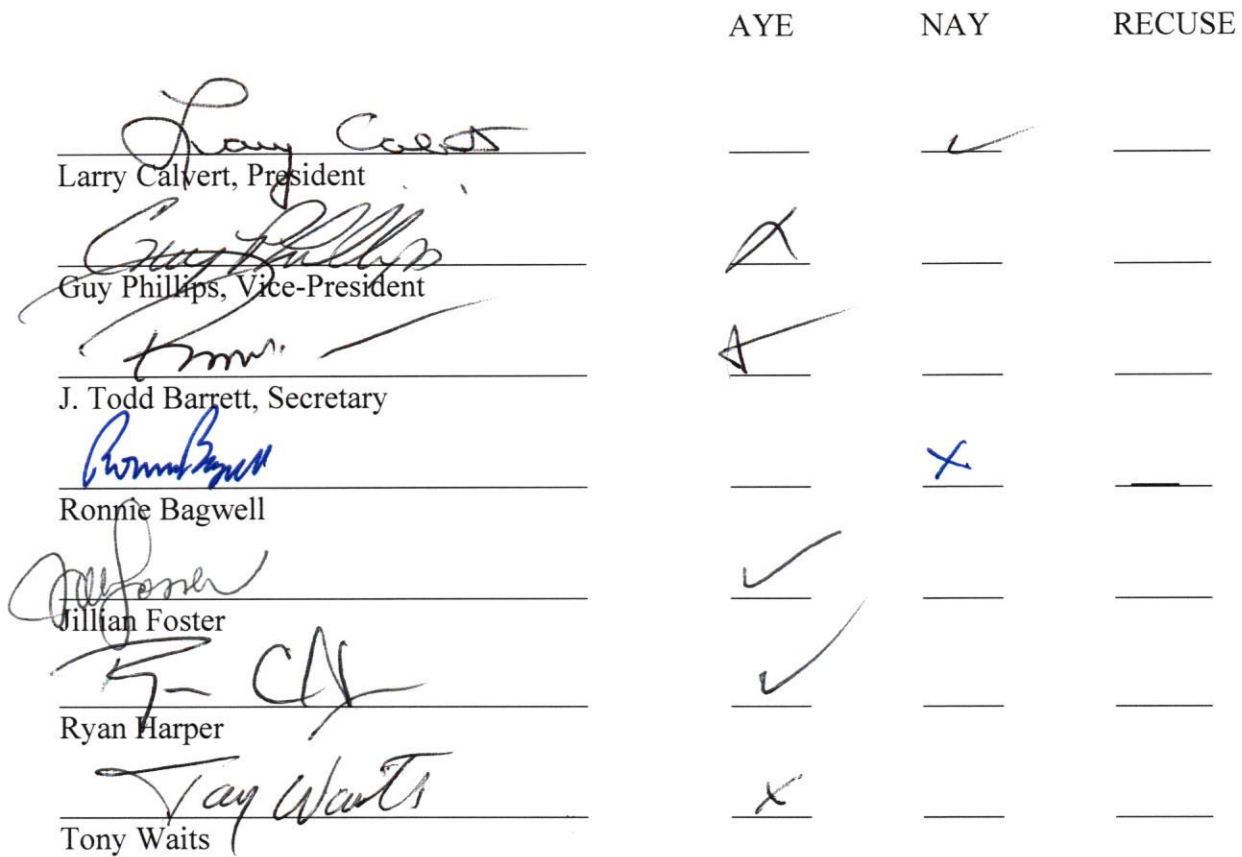 AYE NAY RECUSE
Larry Calvert ✓
Larry Calvert, President
Guy Phillips ✓
Guy Phillips, Vice-President
✓
J. Todd Barrett, Secretary
Ronnie Bagwell X
Ronnie Bagwell
Jill Foster ✓
Jillian Foster
✓
Ryan Harper
Tony Waits X
Tony Waits